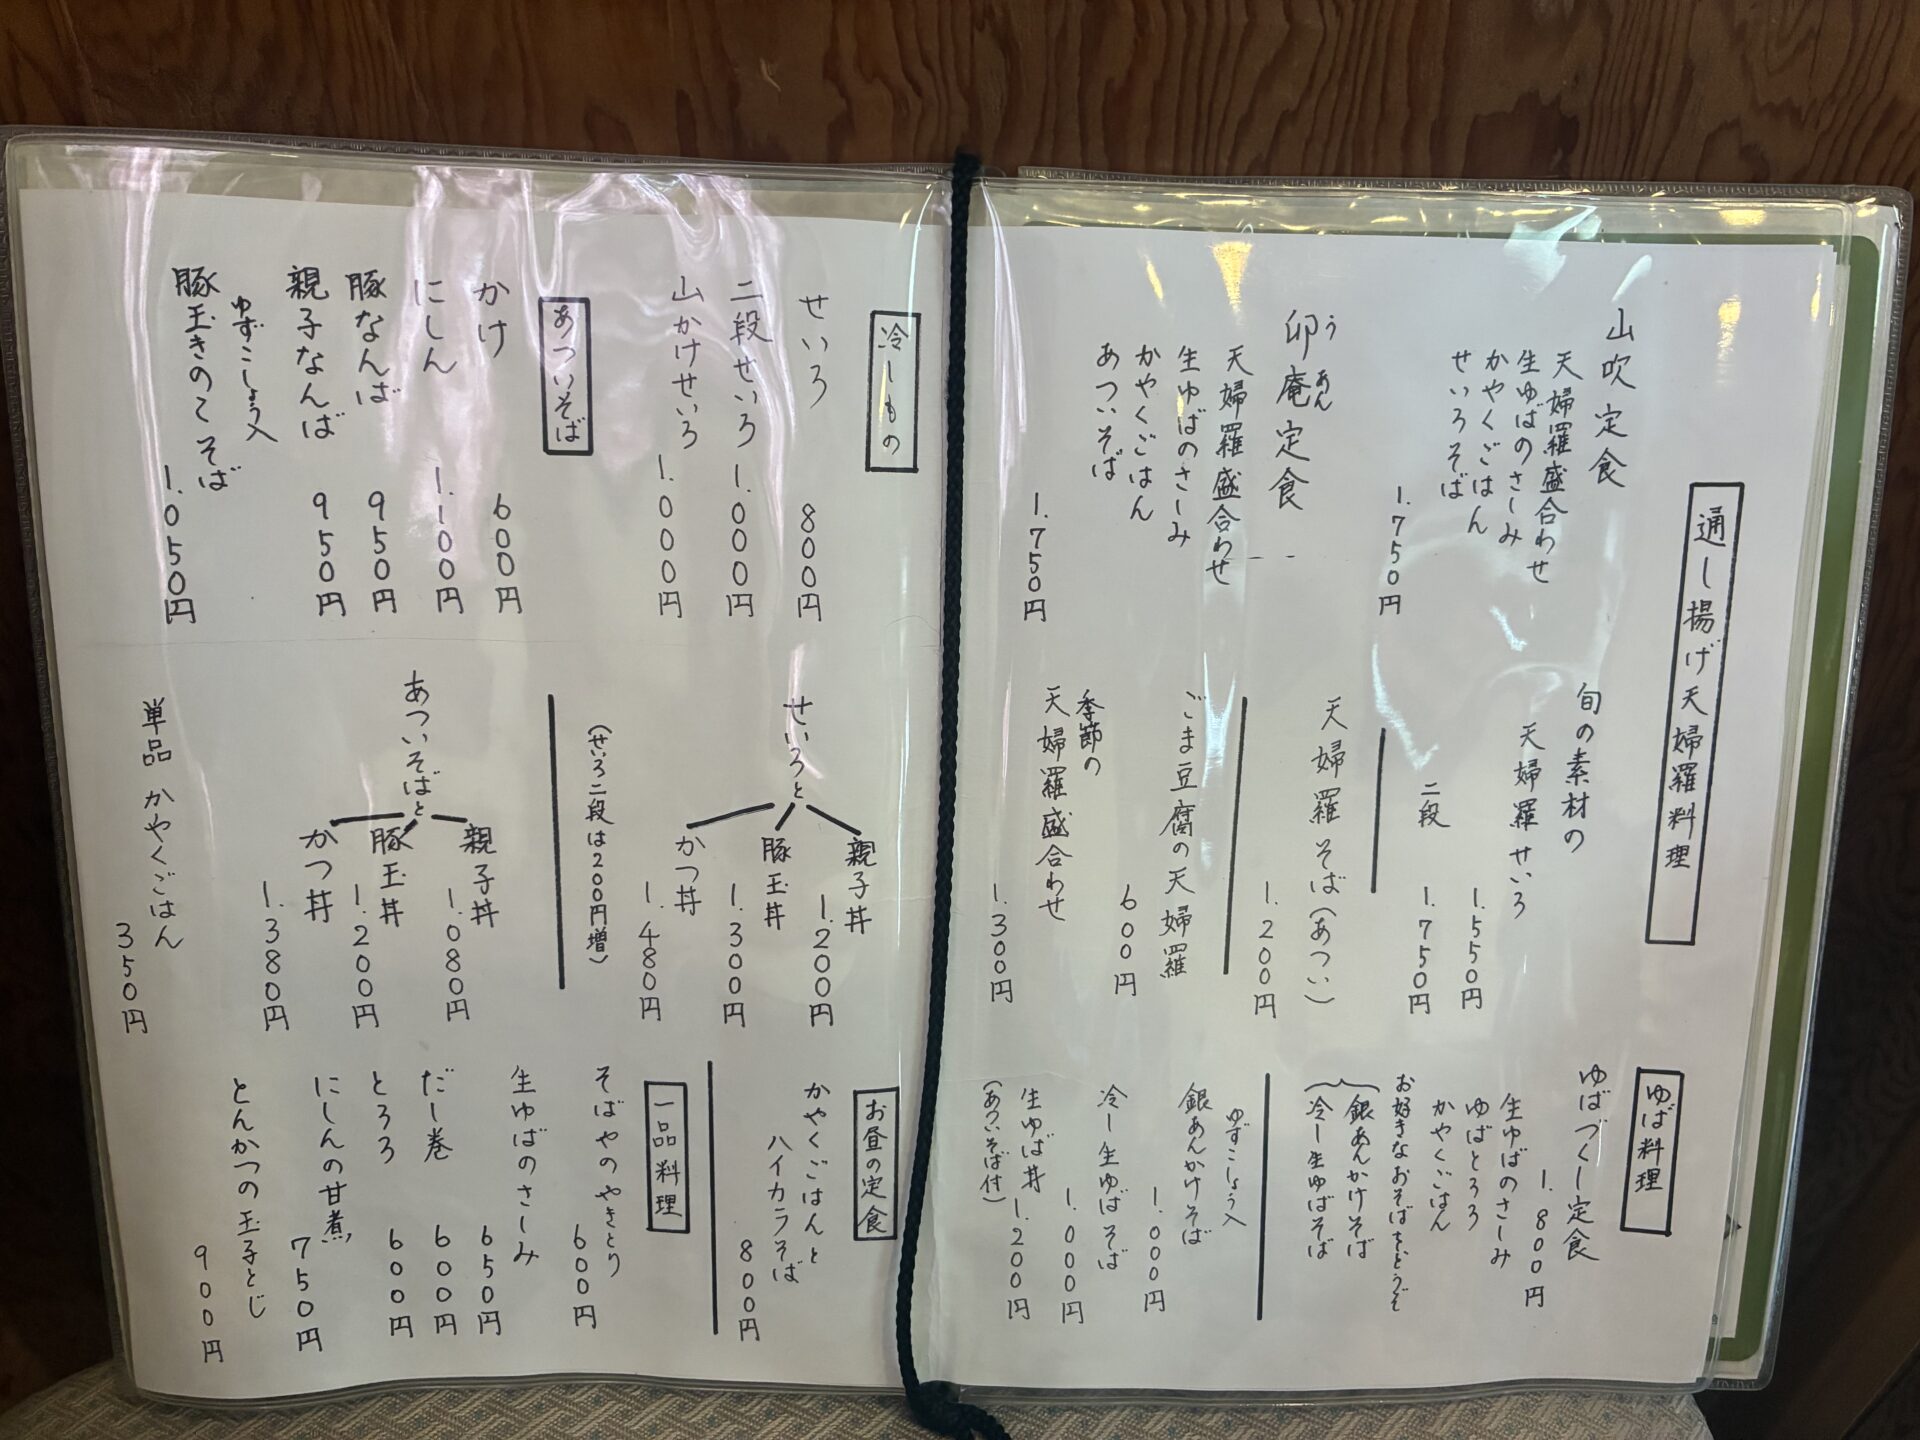 通し揚げ天婦羅料理
山吹定食
天婦羅盛合わせ
生ゆばのさしみ
かやくごはん
せいろそば
1.750円
卯庵定食
うあん
天婦羅盛合わせ
生ゆばのさしみ
かやくごはん
あついそば
1.750円
旬の素材の
天婦羅せいろ
1.550円
二段
1.750円
天婦羅そば(あつい)
1.200円
ごま豆腐の天婦羅
600円
季節の
天婦羅盛合わせ
1.300円
ゆば料理
ゆばづくし定食
1.800円
生ゆばのさしみ
ゆばとろろ
かやくごはん
お好きなおそばをどうぞ
銀あんかけそば
冷し生ゆばそば
ゆずこしょう入
銀あんかけそば
1.000円
冷し生ゆばそば
1.000円
生ゆば丼
1.200円
(あついそば付)
冷しもの
せいろ
800円
二段せいろ
1.000円
山かけせいろ
1.000円
あついそば
かけ
600円
にしん
1.100円
豚なんば
950円
親子なんば
950円
ゆずこしょう入
豚玉きのこそば
1.050円
せいろと
親子丼
1.200円
豚玉丼
1.300円
かつ丼
1.480円
(せいろ二段は200円増)
あついそばと
親子丼
1.080円
豚玉丼
1.200円
かつ丼
1.380円
単品 かやくごはん
350円
お昼の定食
かやくごはんと
ハイカラそば
800円
一品料理
そばやのやきとり
600円
生ゆばのさしみ
650円
だし巻
600円
とろろ
600円
にしんの甘煮
750円
とんかつの玉子とじ
900円